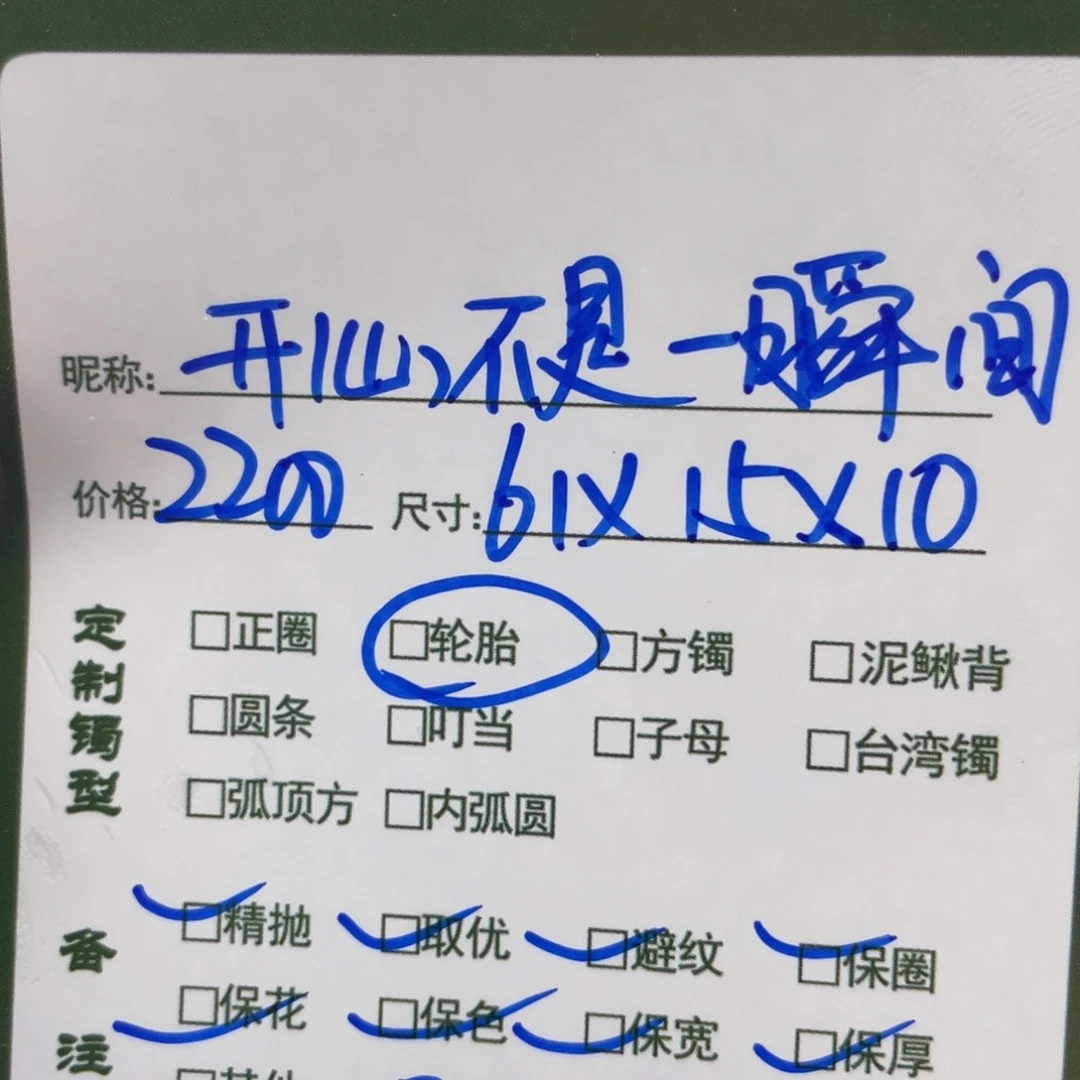 昵称: 开心不是一瞬间
价格: 2200 尺寸: 61X15X10
定制镯型
□正圈 □轮胎 □方镯 □泥鳅背
□圆条 □叮当 □子母 □台湾镯
□弧顶方 □内弧圆
备注
□精抛 □取优 □避纹 □保圈
□保花 □保色 □保宽 □保厚
□其他